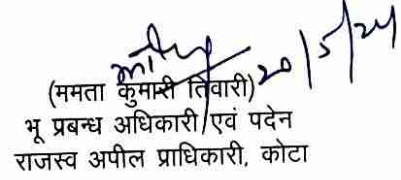 20/5/24
(ममता कुमारी तिवारी)
भू प्रबन्ध अधिकारी एवं पदेन
राजस्व अपील प्राधिकारी, कोटा